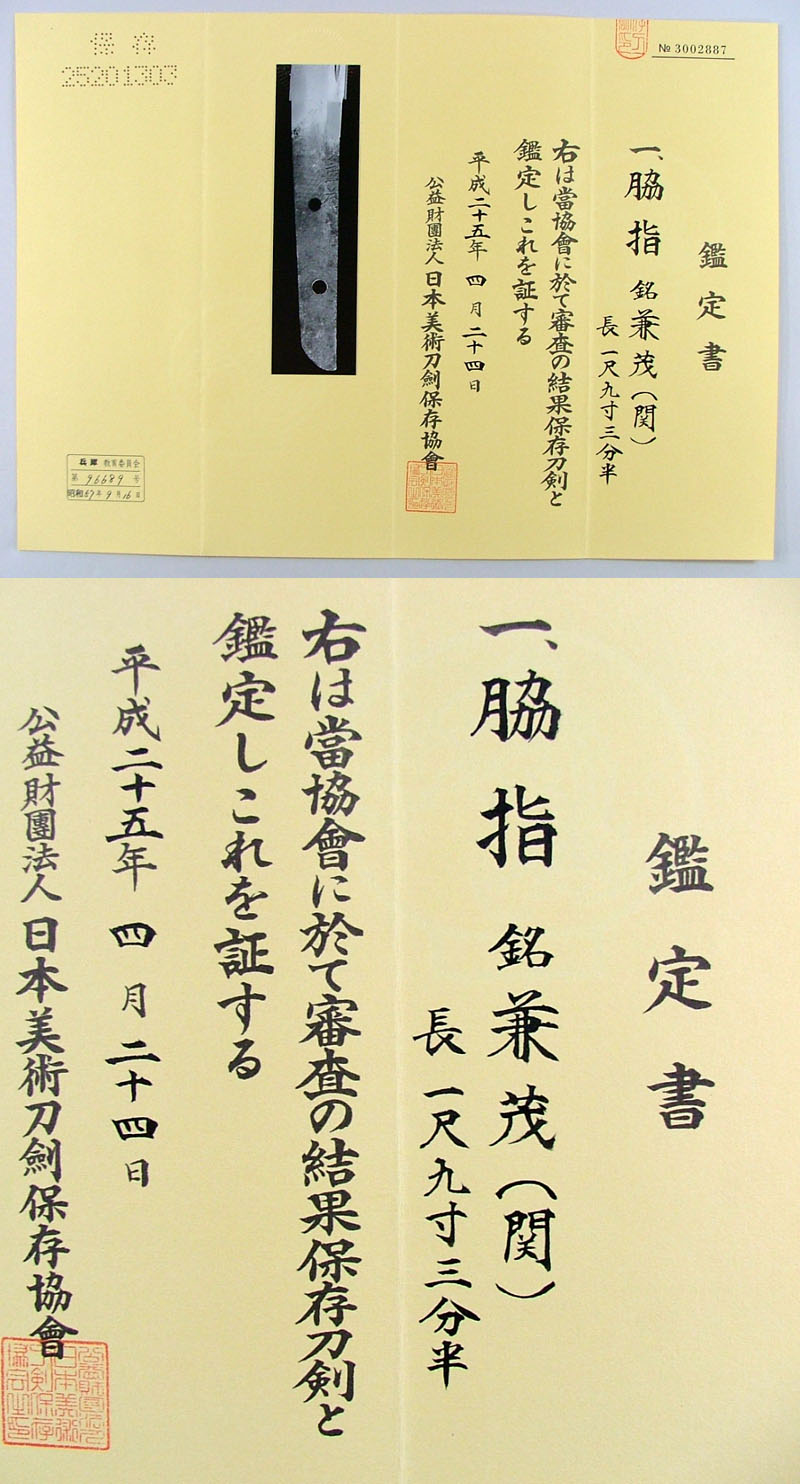 № 3002887
鑑定書
一、脇指 銘 兼茂（関）
長 一尺九寸三分半
右は當協會に於て審査の結果保存刀剣と
鑑定しこれを証する
平成二十五年 四月二十四日
公益財團法人 日本美術刀劍保存協會
保存
25201303
兵庫 教育委員会
第 96689 号
昭和57年9月16日
鑑定書
一、脇指 銘 兼茂（関）
長 一尺九寸三分半
右は當協會に於て審査の結果保存刀剣と
鑑定しこれを証する
平成二十五年 四月二十四日
公益財團法人 日本美術刀劍保存協會